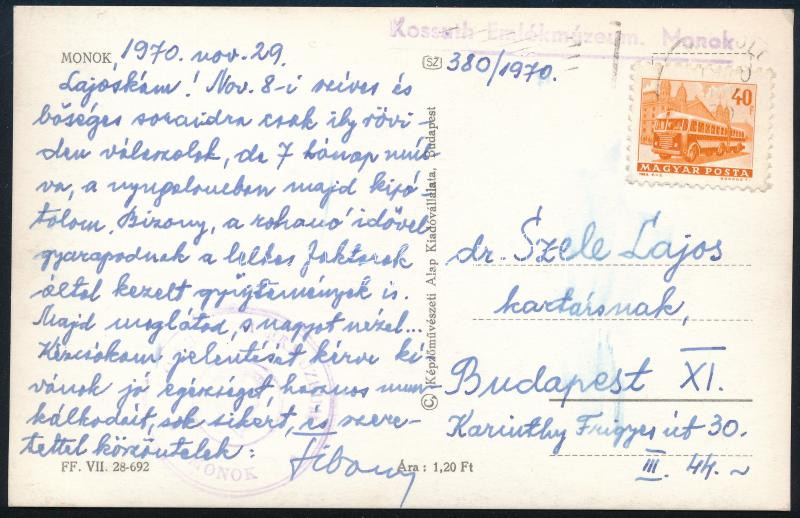 Kossuth Emlékmúzeum. Monok
MONOK, 1970. nov. 29.
Lajoskám! Nov. 8-i szíves és
bőséges soraidra csak ily rövi-
den válaszolok, de 7 hónap múl-
va, a nyugalomban majd kipó-
tolom. Bizony, a rohanó idővel
gyarapodnak a lelkes faktorok
által kezelt gyűjtemények is.
Majd meglátod, s nagyot nézel...
Kézcsókom jelentését kérve kí-
vánok jó egészséget, hasznos mun-
kálkodást, sok sikert, és szere-
tettel köszöntelek:
FF. VII. 28-692
MONOK
SZ
380/1970.
© Képzőművészeti Alap Kiadóvállalata, Budapest
Ára: 1,20 Ft
40 f
MAGYAR POSTA
dr. Szele Lajos
kartársnak,
Budapest XI.
Karinthy Frigyes út 30.
III. 44.